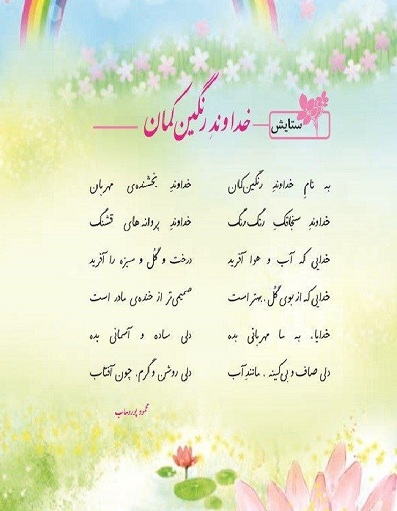 ستایش
خداوندِ رنگین‌کمان
به نامِ خداوندِ رنگین‌کمان خداوندِ بخشنده‌ی مهربان
خداوندِ سنجاقکِ رنگ‌رنگ خداوندِ پروانه‌های قشنگ
خدایی که آب و هوا آفرید درخت و گُل و سبزه را آفرید
خدایی که از بوی گُل، بهتر است صمیمی‌تر از خنده‌ی مادر است
خدایا، به ما مهربانی بده دلی ساده و آسمانی بده
دلی صاف و بی‌کینه، مانندِ آب دلی روشن و گرم، چون آفتاب
محمود پوروهاب